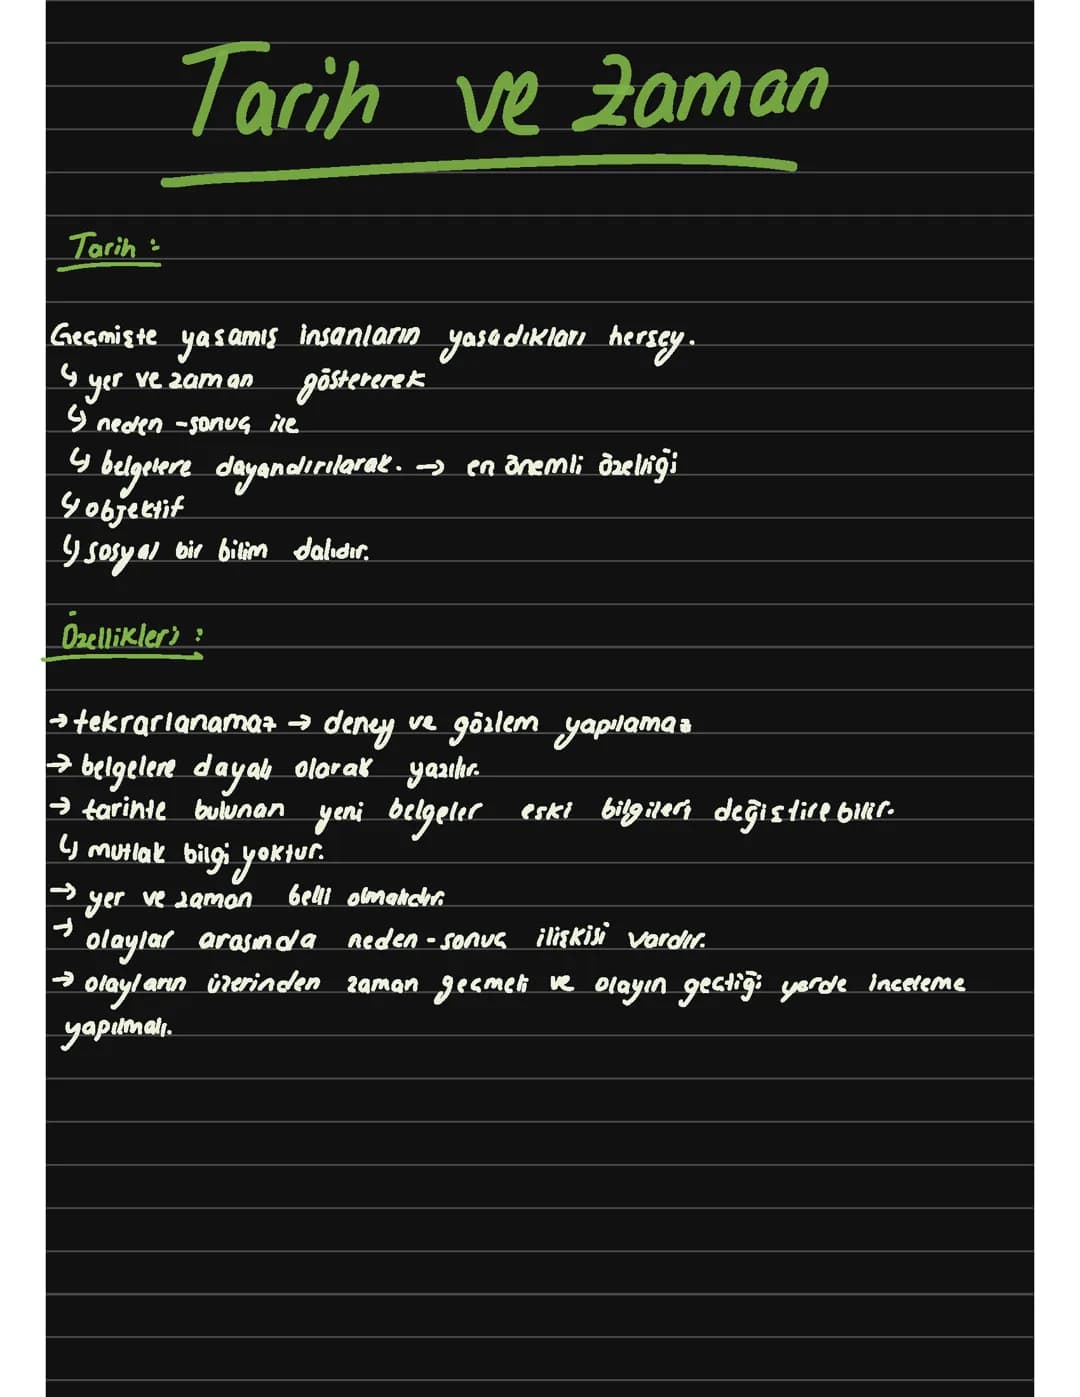 Tarih ve Zaman
Tarih :
Geçmişte yasamış insanların yasadıkları hersey.
↳ yer ve zaman göstererek
↳ neden - sonuç ile
↳ belgelere dayandırılarak. → en önemli özelliği
↳ objektif
↳ sosyal bir bilim dalıdır.
Özellikleri :
→ tekrarlanamaz → deney ve gözlem yapılamaz
→ belgelere dayalı olarak yazılır.
→ tarihte bulunan yeni belgeler eski bilgileri değiştirebilir.
↳ mutlak bilgi yoktur.
→ yer ve zaman belli olmalıdır.
→ olaylar arasında neden - sonuç ilişkisi vardır.
→ olayların üzerinden zaman geçmeli ve olayın geçtiği yerde inceleme
yapılmalı.